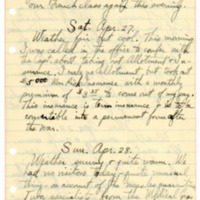 Our French class again this evening.
Sat. Apr. 27.
Weather fair but cool. This morning
I was called in the office to confer with
the sgt. about taking out Allotment or In-
surance. I only no allotment, but took out
$5000 War Risk Insurance with a monthly
premium of $3.25 to come out of my pay.
This insurance is term insurance & is to be
convertable into a permanent form after
the war.
Sun. Apr. 28.
Weather sunny & quite warm. We
had no visitors today - quite unusual
thing - on account of the negroes quarantine
Two from the Medical